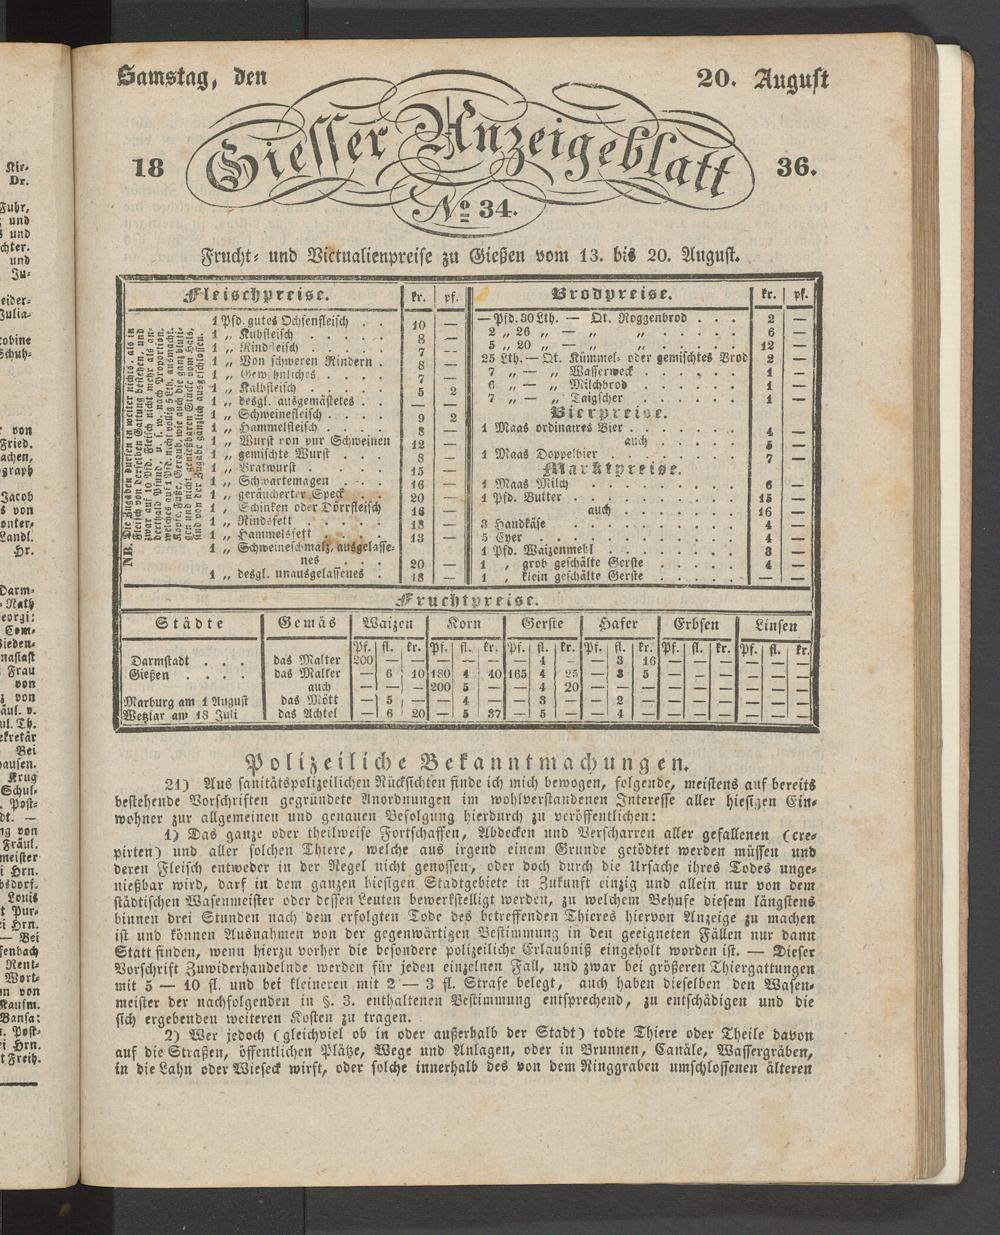 Samstag, den 20. August
18 Giesser Anzeigeblatt 36.
No 34.
Frucht- und Victualienpreise zu Gießen vom 13. bis 20. August.
Fleischpreise. kr. pf.
1 Pfd. gutes Ochsenfleisch . . 10 —
1 „ Kuhfleisch . . . . 8 —
1 „ Rindfleisch . . . . 7 —
1 „ Von schweren Rindern . 8 —
1 „ Gewöhnliches . . . . 7 —
1 „ Kalbfleisch . . . . 5 2
1 „ desgl. ausgemästetes . . — —
1 „ Schweinefleisch . . . . 9 2
1 „ Hammelsfleisch . . . . 8 —
1 „ Wurst von pur Schweinen 12 —
1 „ gemischte Wurst . . . 8 —
1 „ Bratwurst . . . . 15 —
1 „ Schwartemagen . . . . 16 —
1 „ geräucherter Speck . . 20 —
1 „ Schinken oder Dörrfleisch 18 —
1 „ Rindsfett . . . . 18 —
1 „ Hammelsfett . . . . 13 —
1 „ Schweineschmalz, ausgelasse-
nes . . . 20 —
1 „ desgl. unausgelassenes . 18 —
NB. Die Zugaben dürfen in weiter nichts, als in
Fleisch von derselben Gattung bestehen, und
zwar auf 10 Pfd. Fleisch nicht mehr als an-
derthalb Pfund, u. s. w. nach Proportion,
welches auf 1 Pfd. nicht völlig 5 Lth. ausmacht.
Köpfe, Füße, Geraub, wie auch die ganz bluti-
gen und nicht genießbaren Stücke vom Hals,
sind von der Zugabe gänzlich ausgeschlossen.
Brodpreise. kr. pf.
— Pfd. 30 Lth. — Qt. Roggenbrod . . . 2 —
2 „ 26 „ — „ „ . . . . 6 —
5 „ 20 „ — „ „ . . . . 12 —
25 Lth. — Qt. Kümmel- oder gemischtes Brod 2 —
7 „ — „ Wasserweck . . . . . 1 —
6 „ — „ Milchbrod . . . . . 1 —
7 „ — „ Taigscher . . . . . 1 —
Bierpreise.
1 Maas ordinaires Bier . . . . . 4 —
auch . . . . 5 —
1 Maas Doppelbier . . . . . 7 —
Marktpreise.
1 Maas Milch . . . . . 6 —
1 Pfd. Butter . . . . . 15 —
auch . . . . . 16 —
3 Handkäse . . . . . 4 —
5 Eyer . . . . . 4 —
1 Pfd. Waizenmehl . . . . . 3 —
1 „ grob geschälte Gerste . . . . 4 —
1 „ klein geschälte Gerste . . . . — —
Fruchtpreise.
Städte Gemäs Waizen Korn Gerste Hafer Erbsen Linsen
Pf. fl. kr. Pf. fl. kr. Pf. fl. kr. Pf. fl. kr. Pf. fl. kr. Pf. fl. kr.
Darmstadt . . . das Malter 200 — — — — — — 4 — — 3 16 — — — — — —
Gießen . . . das Malter — 6 10 180 4 40 165 4 25 — 3 5 — — — — — —
auch — — — 200 5 — — 4 20 — — — — — — — — —
Marburg am 1 August das Mött — 5 — — 4 — — 3 — — 2 — — — — — — —
Wetzlar am 18 Juli das Achtel — 6 20 — 5 37 — 5 — — 4 — — — — — — —
Polizeiliche Bekanntmachungen.
21) Aus sanitätspolizeilichen Rücksichten finde ich mich bewogen, folgende, meistens auf bereits
bestehende Vorschriften gegründete Anordnungen im wohlverstandenen Interesse aller hiesigen Ein-
wohner zur allgemeinen und genauen Befolgung hierdurch zu veröffentlichen:
1) Das ganze oder theilweise Fortschaffen, Abdecken und Verscharren aller gefallenen (cre-
pirten) und aller solchen Thiere, welche aus irgend einem Grunde getödtet werden müssen und
deren Fleisch entweder in der Regel nicht genossen, oder doch durch die Ursache ihres Todes unge-
nießbar wird, darf in dem ganzen hiesigen Stadtgebiete in Zukunft einzig und allein nur von dem
städtischen Wasenmeister oder dessen Leuten bewerkstelligt werden, zu welchem Behufe diesem längstens
binnen drei Stunden nach dem erfolgten Tode des betreffenden Thieres hiervon Anzeige zu machen
ist und können Ausnahmen von der gegenwärtigen Bestimmung in den geeigneten Fällen nur dann
Statt finden, wenn hierzu vorher die besondere polizeiliche Erlaubniß eingeholt worden ist. — Dieser
Vorschrift Zuwiderhandelnde werden für jeden einzelnen Fall, und zwar bei größeren Thiergattungen
mit 5 — 10 fl. und bei kleineren mit 2 — 3 fl. Strafe belegt, auch haben dieselben den Wasen-
meister der nachfolgenden in §. 3. enthaltenen Bestimmung entsprechend, zu entschädigen und die
sich ergebenden weiteren Kosten zu tragen.
2) Wer jedoch (gleichviel ob in oder außerhalb der Stadt) todte Thiere oder Theile davon
auf die Straßen, öffentlichen Plätze, Wege und Anlagen, oder in Brunnen, Canäle, Wassergräben,
in die Lahn oder Wieseck wirft, oder solche innerhalb des von dem Ringgraben umschlossenen älteren